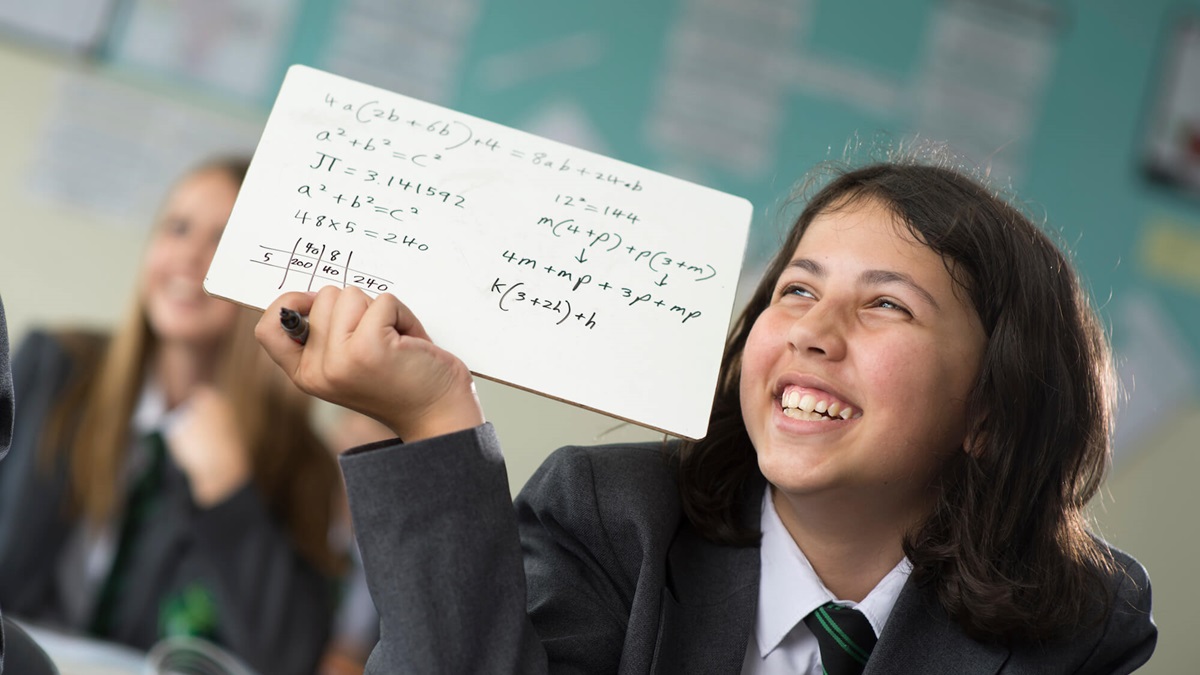 4a(2b+6b)+4 = 8ab+24ab
a²+b²=c²
π = 3.141592
a²+b²=c²
48×5=240
40 8
5 200 40 240
12²=144
m(4+p)+p(3+m)
↓ ↓
4m+mp+3p+mp
K(3+2h)+h